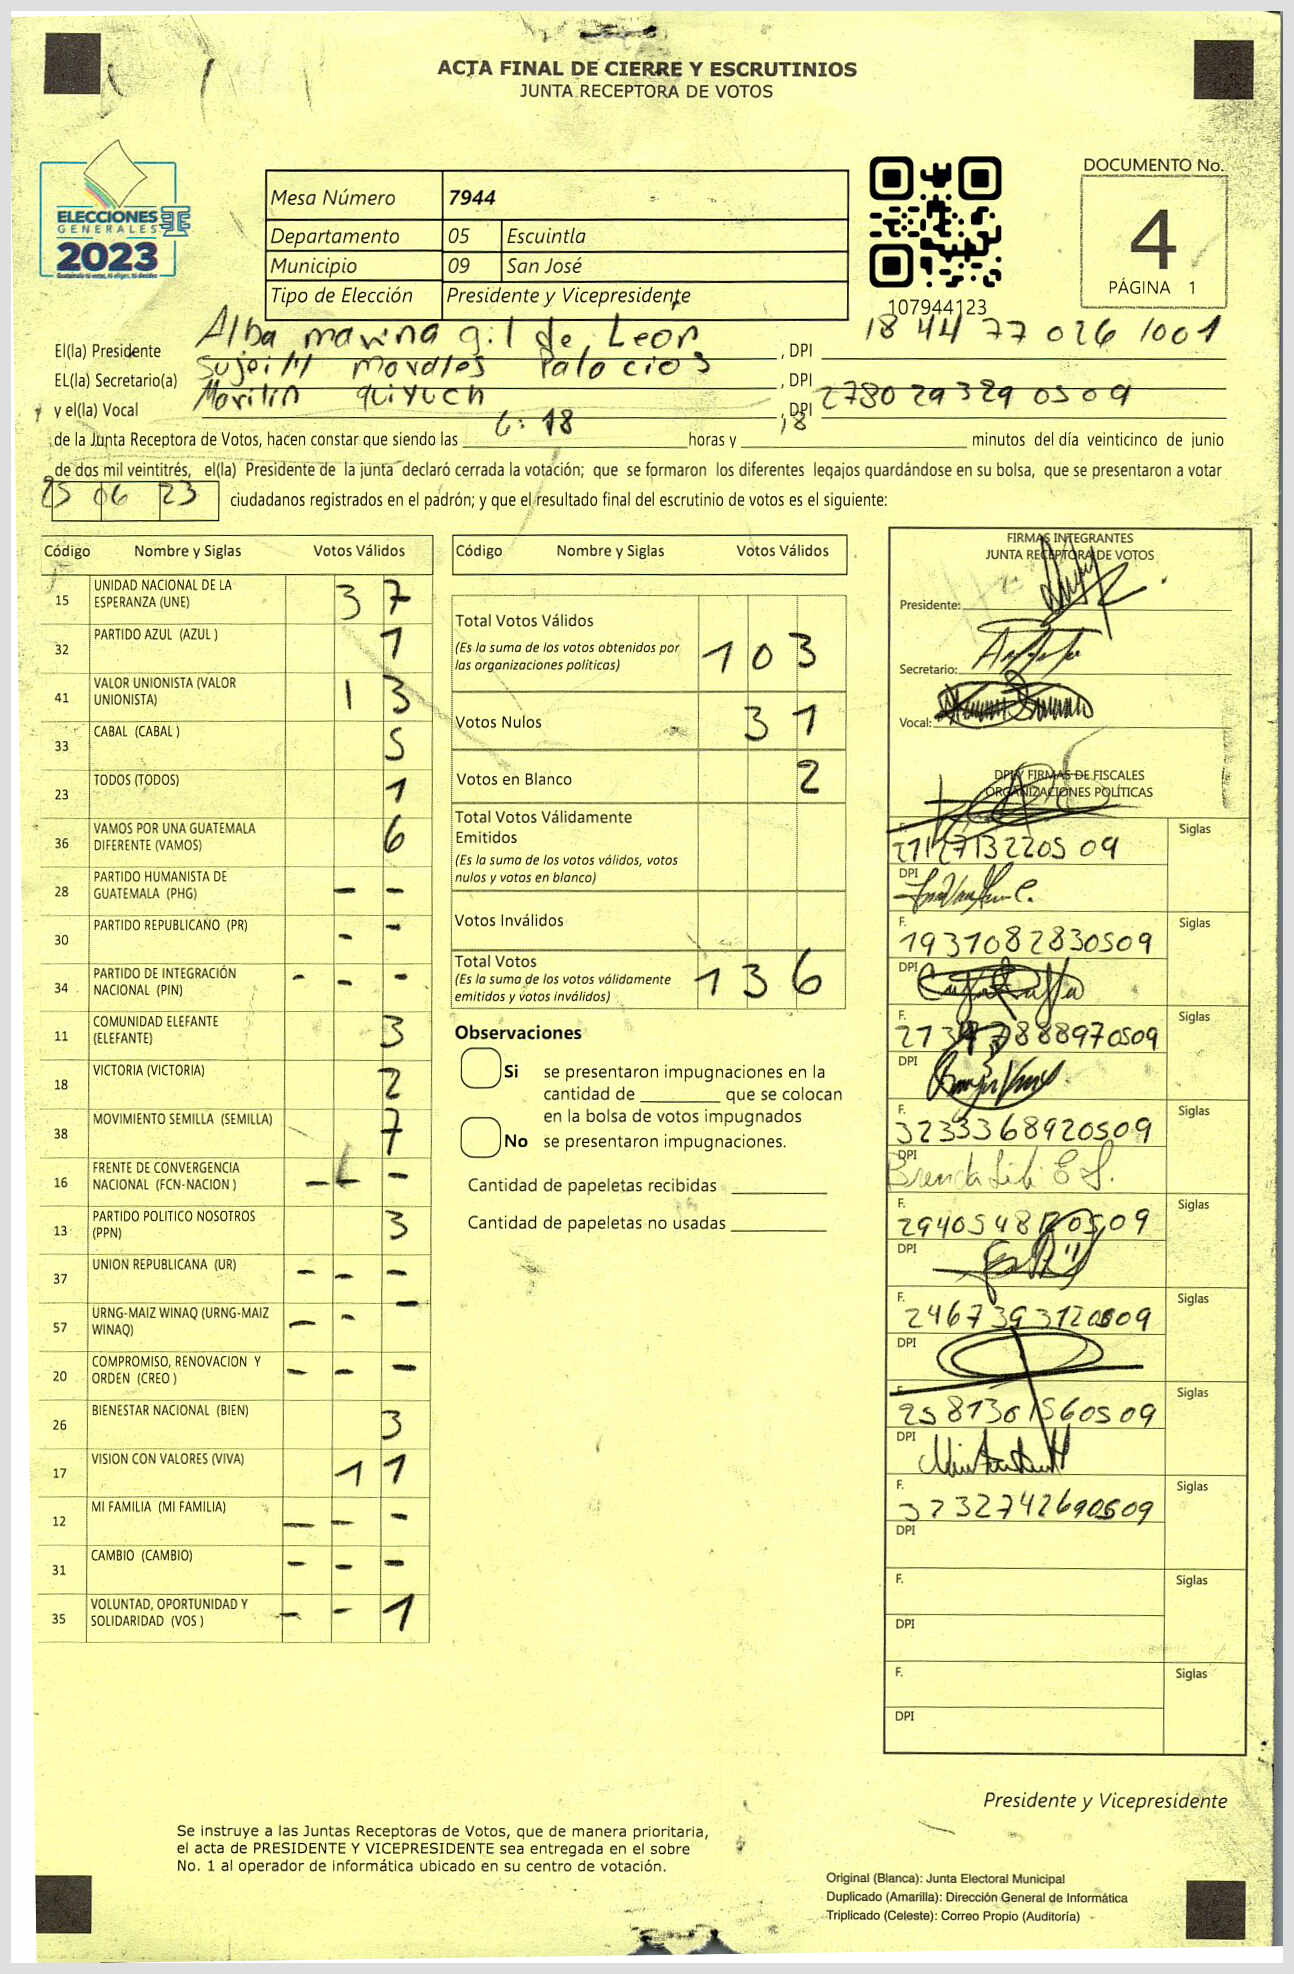 ACTA FINAL DE CIERRE Y ESCRUTINIOS
JUNTA RECEPTORA DE VOTOS
ELECCIONES
GENERALES
2023
Mesa Número 7944
Departamento 05 Escuintla
Municipio 09 San José
Tipo de Elección Presidente y Vicepresidente
107944123
DOCUMENTO No.
4
PÁGINA 1
El(la) Presidente Alba marina gil de Leon, DPI 18 44 77 026 1001
EL(la) Secretario(a) morales Palacios, DPI
y el(la) Vocal quiyuch, DPI 2780 29329 0509
de la Junta Receptora de Votos, hacen constar que siendo las 6:18 horas y 18 minutos del día veinticinco de junio
de dos mil veintitrés, el(la) Presidente de la junta declaró cerrada la votación; que se formaron los diferentes legajos guardándose en su bolsa, que se presentaron a votar
25 06 23 ciudadanos registrados en el padrón; y que el resultado final del escrutinio de votos es el siguiente:
Código Nombre y Siglas Votos Válidos
15 UNIDAD NACIONAL DE LA ESPERANZA (UNE) 3 7
32 PARTIDO AZUL (AZUL ) 1
41 VALOR UNIONISTA (VALOR UNIONISTA) 1 3
33 CABAL (CABAL ) 5
23 TODOS (TODOS) 1
36 VAMOS POR UNA GUATEMALA DIFERENTE (VAMOS) 6
28 PARTIDO HUMANISTA DE GUATEMALA (PHG) - -
30 PARTIDO REPUBLICANO (PR) - -
34 PARTIDO DE INTEGRACIÓN NACIONAL (PIN) - - -
11 COMUNIDAD ELEFANTE (ELEFANTE) 3
18 VICTORIA (VICTORIA) 2
38 MOVIMIENTO SEMILLA (SEMILLA) 7
16 FRENTE DE CONVERGENCIA NACIONAL (FCN-NACION ) - - -
13 PARTIDO POLITICO NOSOTROS (PPN) 3
37 UNION REPUBLICANA (UR) - - -
57 URNG-MAIZ WINAQ (URNG-MAIZ WINAQ) - - -
20 COMPROMISO, RENOVACION Y ORDEN (CREO ) - - -
26 BIENESTAR NACIONAL (BIEN) 3
17 VISION CON VALORES (VIVA) 1 1
12 MI FAMILIA (MI FAMILIA) - - -
31 CAMBIO (CAMBIO) - - -
35 VOLUNTAD, OPORTUNIDAD Y SOLIDARIDAD (VOS ) - - 1
Código Nombre y Siglas Votos Válidos
Total Votos Válidos 1 0 3
(Es la suma de los votos obtenidos por
las organizaciones políticas)
Votos Nulos 3 1
Votos en Blanco 2
Total Votos Válidamente
Emitidos
(Es la suma de los votos válidos, votos
nulos y votos en blanco)
Votos Inválidos
Total Votos 1 3 6
(Es la suma de los votos válidamente
emitidos y votos inválidos)
Observaciones
Si se presentaron impugnaciones en la
cantidad de ________ que se colocan
en la bolsa de votos impugnados
No se presentaron impugnaciones.
Cantidad de papeletas recibidas
Cantidad de papeletas no usadas
FIRMAS INTEGRANTES
JUNTA RECEPTORA DE VOTOS
Presidente:
Secretario:
Vocal:
DPI Y FIRMAS DE FISCALES
ORGANIZACIONES POLÍTICAS
F. Siglas
DPI
F. 1931082830509 Siglas
DPI
F. Siglas
DPI
F. 3233368920509 Siglas
DPI Brenda
F. Siglas
DPI
F. Siglas
DPI
F. Siglas
DPI
F. 3232742690509 Siglas
DPI
F. Siglas
DPI
F. Siglas
DPI
Presidente y Vicepresidente
Se instruye a las Juntas Receptoras de Votos, que de manera prioritaria,
el acta de PRESIDENTE Y VICEPRESIDENTE sea entregada en el sobre
No. 1 al operador de informática ubicado en su centro de votación.
Original (Blanca): Junta Electoral Municipal
Duplicado (Amarilla): Dirección General de Informática
Triplicado (Celeste): Correo Propio (Auditoría)